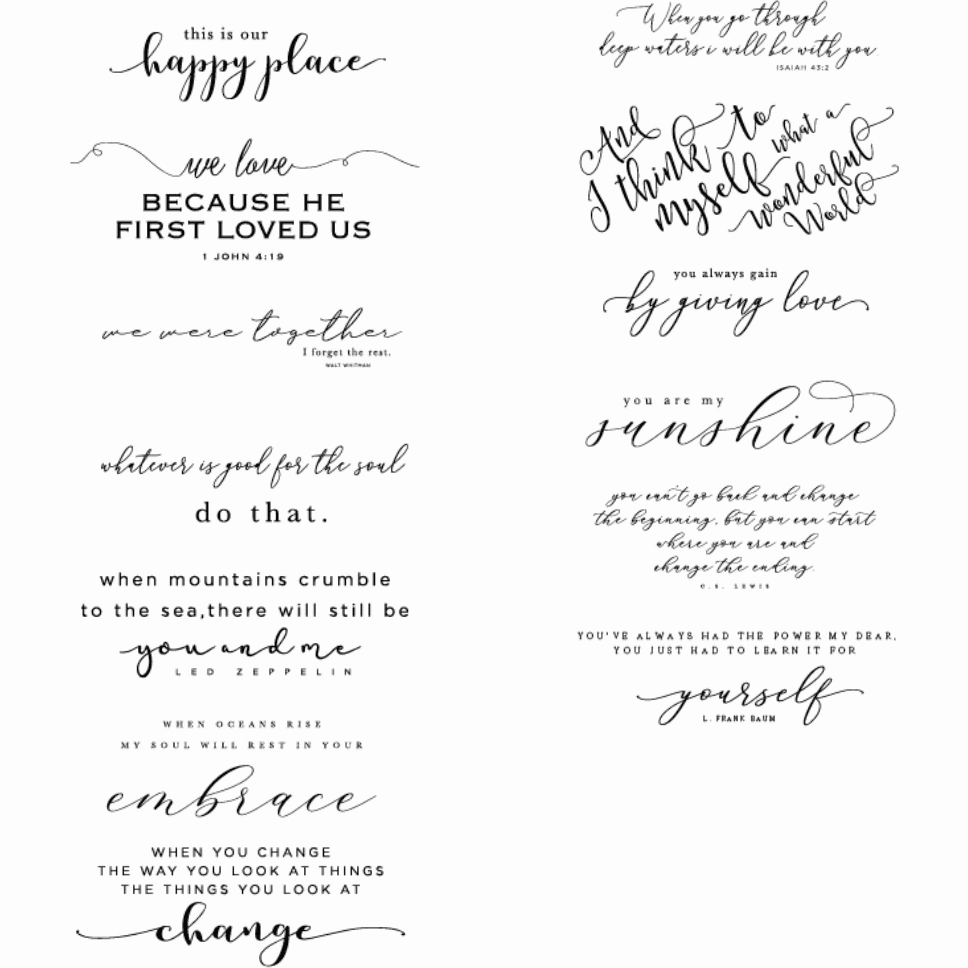 this is our
happy place
we love
BECAUSE HE
FIRST LOVED US
1 JOHN 4:19
we were together
I forget the rest.
WALT WHITMAN
whatever is good for the soul
do that.
when mountains crumble
to the sea,there will still be
you and me
LED ZEPPELIN
WHEN OCEANS RISE
MY SOUL WILL REST IN YOUR
embrace
WHEN YOU CHANGE
THE WAY YOU LOOK AT THINGS
THE THINGS YOU LOOK AT
change
When you go through
deep waters i will be with you
ISAIAH 43:2
And
I think to
myself what a
wonderful
World
you always gain
by giving love
you are my
sunshine
you can't go back and change
the beginning, but you can start
where you are and
change the ending.
C.S. LEWIS
YOU'VE ALWAYS HAD THE POWER MY DEAR,
YOU JUST HAD TO LEARN IT FOR
yourself
L. FRANK BAUM